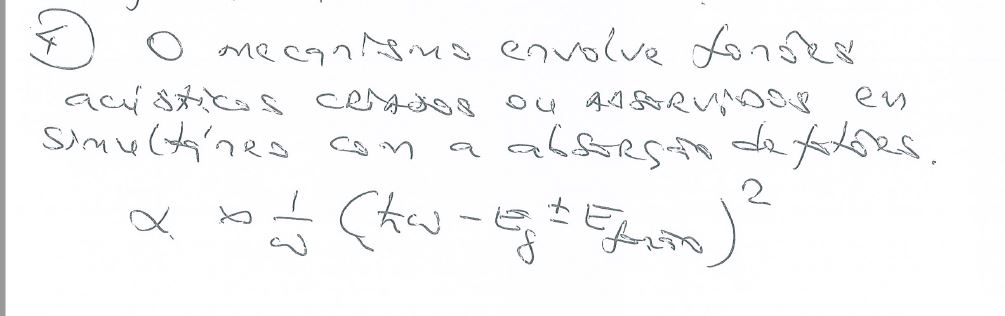 ④ O mecanismo envolve fonões
acústicos criados ou absorvidos em
simultâneo com a absorção de fotões.
α ∝ 1/ω (ħω - Eg ± Efonão)²